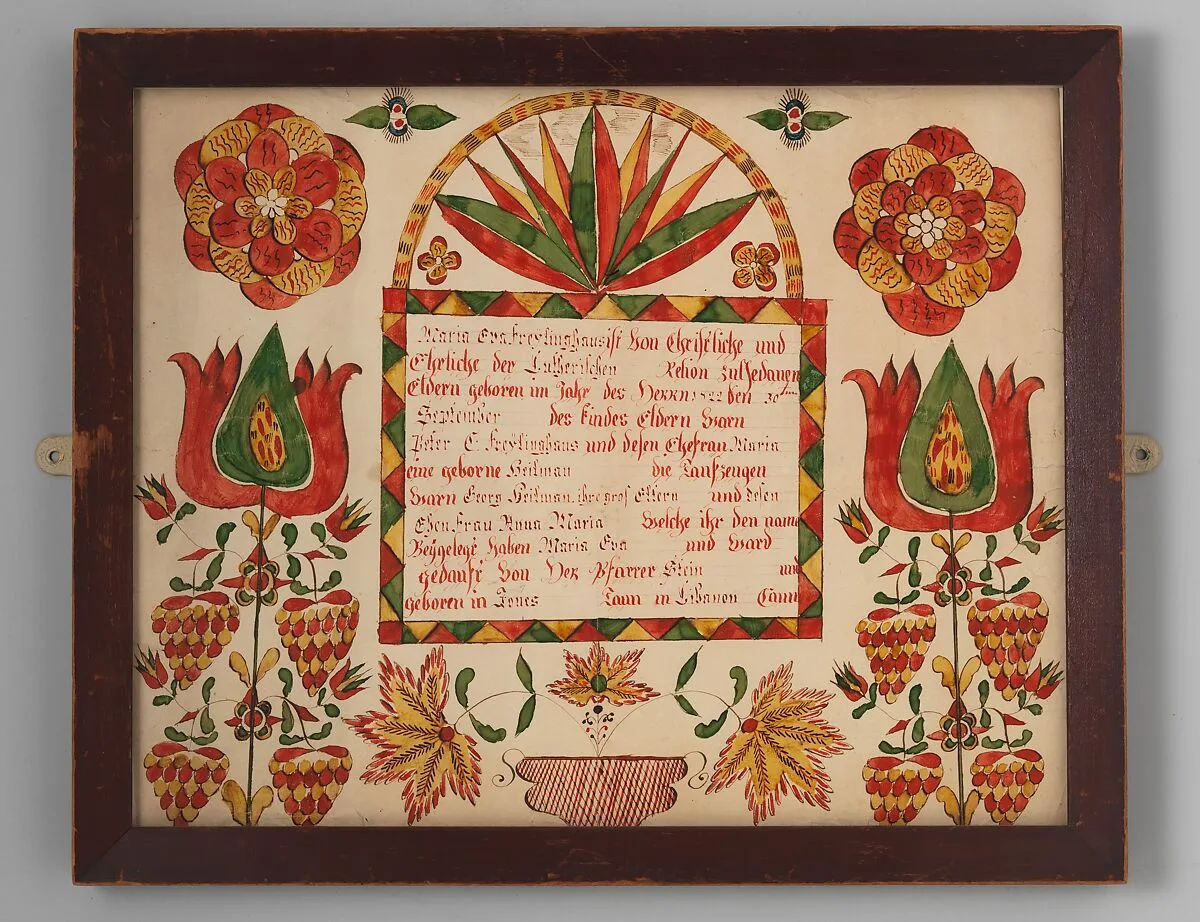 Maria Eva Freylinghaus ist Von Christliche und
Ehrliche der Lutherischen Relion zulhedanen
Eldern geboren im Jahr des Herrn 1822 den 30ten
September des kindes Eldern Warn
Peter C. Freylinghaus und desen Ehefrau Maria
eine geborne Heilman die Taufzeugen
Warn Georg Heilman. ihre gros Eltern und desen
Ehen Frau Anna Maria Welche ihr den name
Beÿgelegt haben Maria Eva und Ward
gedauft Von Der Pfarrer Stein und
geboren in Taun in Libanon Caun